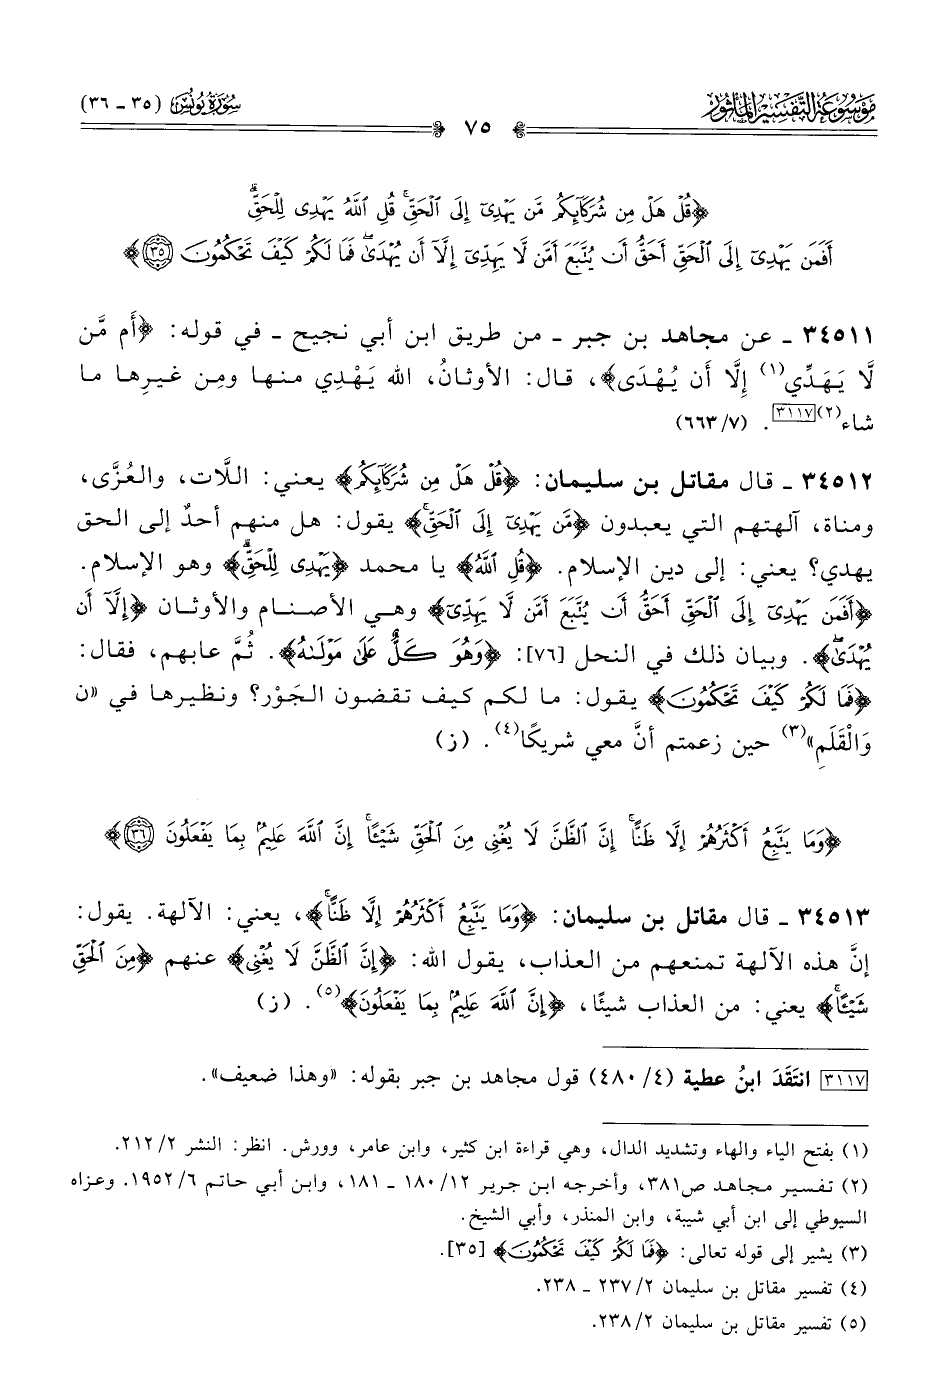 مَوْسُوعَةُ التَّفْسِيْرِ المَأْثُورِ
٧٥
سُورَةُ يُونُسَ (٣٥ ـ ٣٦)
﴿قُلْ هَلْ مِن شُرَكَآئِكُم مَّن يَهْدِىٓ إِلَى ٱلْحَقِّ ۚ قُلِ ٱللَّهُ يَهْدِى لِلْحَقِّ ۗ
أَفَمَن يَهْدِىٓ إِلَى ٱلْحَقِّ أَحَقُّ أَن يُتَّبَعَ أَمَّن لَّا يَهِدِّىٓ إِلَّآ أَن يُهْدَىٰ ۖ فَمَا لَكُمْ كَيْفَ تَحْكُمُونَ ٣٥﴾
٣٤٥١١ ـ عن مجاهد بن جبر ـ من طريق ابن أبي نجيح ـ في قوله: ﴿أَم مَّن
لَّا يَهَدِّي(١) إِلَّا أَن يُهْدَى﴾، قال: الأوثانُ، الله يَهْدِي منها ومِن غيرِها ما
شاء(٢)[٣١١٧]. (٦٦٣/٧)
٣٤٥١٢ ـ قال مقاتل بن سليمان: ﴿قُلْ هَلْ مِن شُرَكَآئِكُم﴾ يعني: اللَّات، والعُزَّى،
ومناة، آلهتهم التي يعبدون ﴿مَّن يَهْدِىٓ إِلَى ٱلْحَقِّ ۚ﴾ يقول: هل منهم أحدٌ إلى الحق
يهدي؟ يعني: إلى دين الإسلام. ﴿قُلِ ٱللَّهُ﴾ يا محمد ﴿يَهْدِى لِلْحَقِّ ۗ﴾ وهو الإسلام.
﴿أَفَمَن يَهْدِىٓ إِلَى ٱلْحَقِّ أَحَقُّ أَن يُتَّبَعَ أَمَّن لَّا يَهِدِّىٓ﴾ وهي الأصنام والأوثان ﴿إِلَّآ أَن
يُهْدَىٰ ۖ﴾. وبيان ذلك في النحل [٧٦]: ﴿وَهُوَ كَلٌّ عَلَىٰ مَوْلَىٰهُ﴾. ثُمَّ عابهم، فقال:
﴿فَمَا لَكُمْ كَيْفَ تَحْكُمُونَ﴾ يقول: ما لكم كيف تقضون الجَوْر؟ ونظيرها في «ن
وَالْقَلَمِ»(٣) حين زعمتم أنَّ معي شريكًا(٤). (ز)
﴿وَمَا يَتَّبِعُ أَكْثَرُهُمْ إِلَّا ظَنًّا ۚ إِنَّ ٱلظَّنَّ لَا يُغْنِى مِنَ ٱلْحَقِّ شَيْـًٔا ۚ إِنَّ ٱللَّهَ عَلِيمٌۢ بِمَا يَفْعَلُونَ ٣٦﴾
٣٤٥١٣ ـ قال مقاتل بن سليمان: ﴿وَمَا يَتَّبِعُ أَكْثَرُهُمْ إِلَّا ظَنًّا ۚ﴾، يعني: الآلهة. يقول:
إنَّ هذه الآلهة تمنعهم من العذاب، يقول الله: ﴿إِنَّ ٱلظَّنَّ لَا يُغْنِى﴾ عنهم ﴿مِنَ ٱلْحَقِّ
شَيْـًٔا ۚ﴾ يعني: من العذاب شيئًا، ﴿إِنَّ ٱللَّهَ عَلِيمٌۢ بِمَا يَفْعَلُونَ﴾(٥). (ز)
[٣١١٧] انتَقَدَ ابنُ عطية (٤/ ٤٨٠) قول مجاهد بن جبر بقوله: «وهذا ضعيف».
(١) بفتح الياء والهاء وتشديد الدال، وهي قراءة ابن كثير، وابن عامر، وورش. انظر: النشر ٢/ ٢١٢.
(٢) تفسير مجاهد ص٣٨١، وأخرجه ابن جرير ١٢/ ١٨٠ ـ ١٨١، وابن أبي حاتم ٦/ ١٩٥٢. وعزاه
السيوطي إلى ابن أبي شيبة، وابن المنذر، وأبي الشيخ.
(٣) يشير إلى قوله تعالى: ﴿فَمَا لَكُمْ كَيْفَ تَحْكُمُونَ﴾ [٣٥].
(٤) تفسير مقاتل بن سليمان ٢/ ٢٣٧ ـ ٢٣٨.
(٥) تفسير مقاتل بن سليمان ٢/ ٢٣٨.